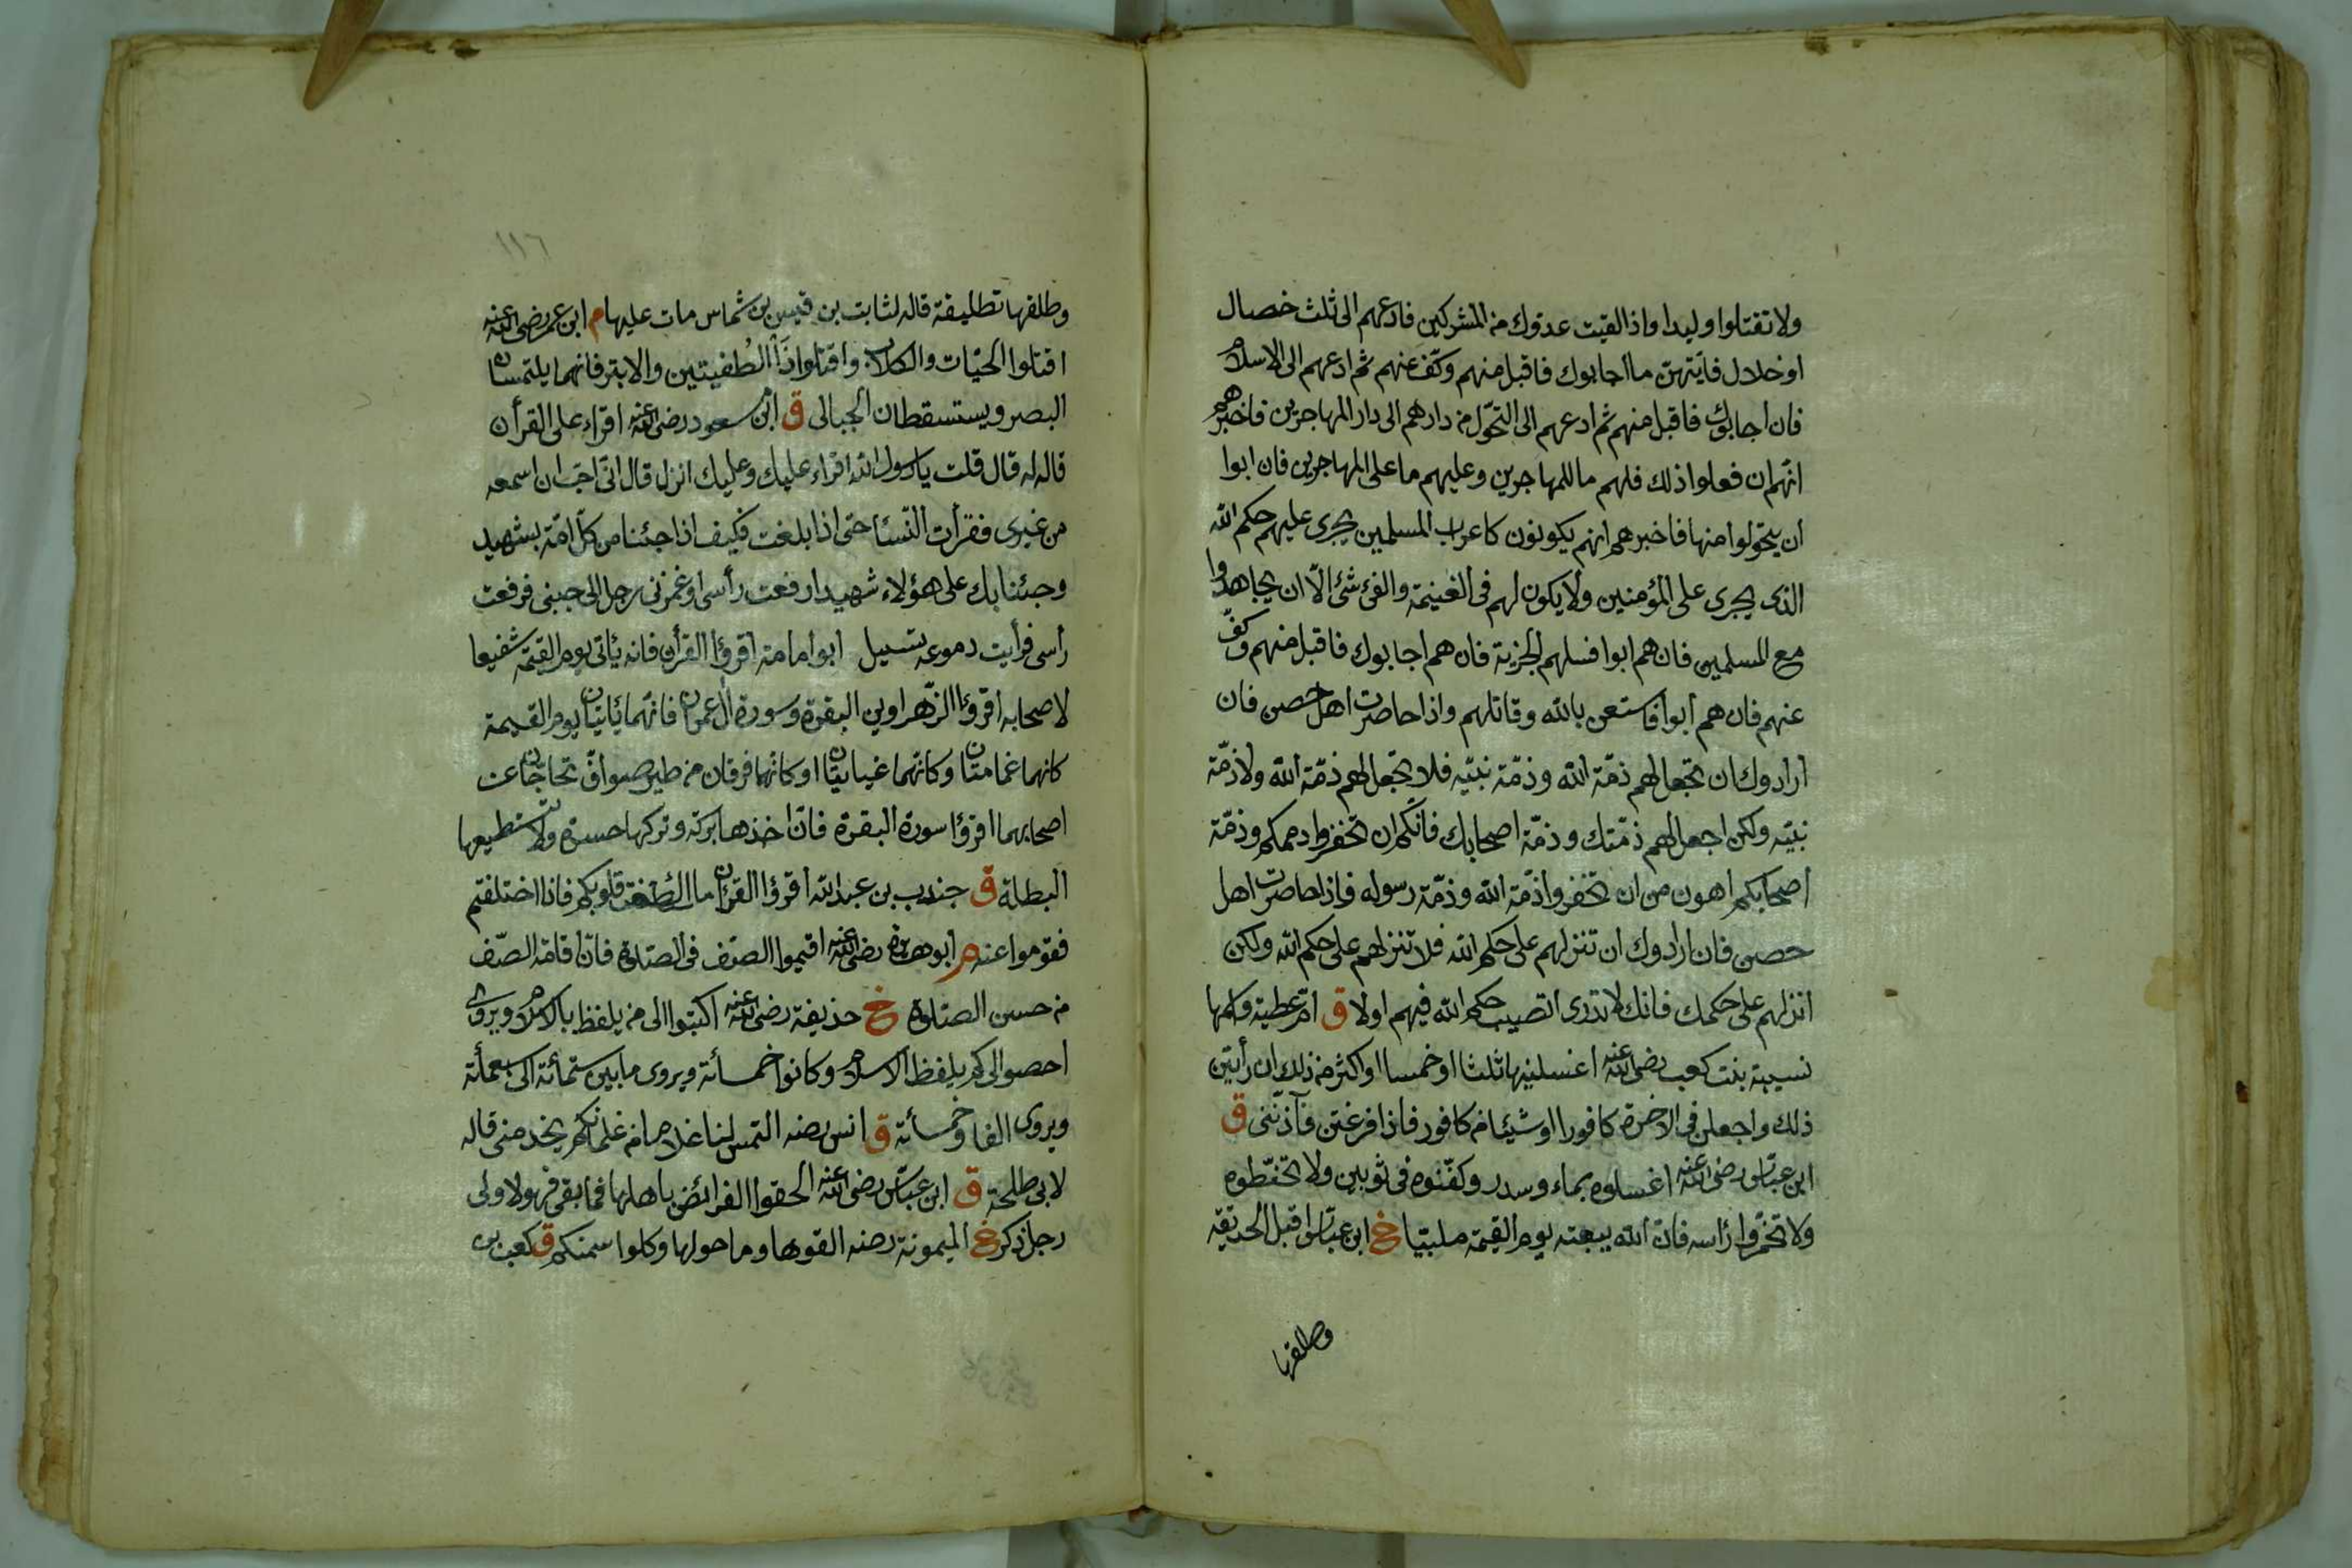 ولا تقتلوا وليدا واذا لقيت عدوك من المشركين فادعهم الى ثلث خصال
او خلال فايتهنّ ما اجابوك فاقبل منهم وكفّ عنهم ثم ادعهم الى الاسلام
فان اجابوك فاقبل منهم ثم ادعهم الى التحوّل من دارهم الى دار المهاجرين فاخبرهم
انهم ان فعلوا ذلك فلهم ما للمهاجرين وعليهم ما على المهاجرين فان ابوا
ان يتحوّلوا منها فاخبرهم انهم يكونون كاعراب المسلمين يجرى عليهم حكم الله
الذى يجرى على المؤمنين ولا يكون لهم فى الغنيمة والفئ شئ الّا ان يجاهدوا
مع المسلمين فان هم ابوا فسلهم الجزية فان هم اجابوك فاقبل منهم وكفّ
عنهم فان هم ابوا فاستعن بالله وقاتلهم واذا حاصرت اهل حصن فان
ارادوك ان تجعل لهم ذمّة الله وذمّة نبيّه فلا تجعل لهم ذمّة الله ولا ذمّة
نبيّه ولكن اجعل لهم ذمّتك وذمّة اصحابك فانّكم ان تخفروا ذممكم وذمّة
اصحابكم اهون من ان تخفروا ذمّة الله وذمّة رسوله فاذا حاصرت اهل
حصن فان ارادوك ان تنزلهم على حكم الله فلا تنزلهم على حكم الله ولكن
انزلهم على حكمك فانك لا تدرى اتصيب حكم الله فيهم او لا ق امّ عطية واسمها
نسيبة بنت كعب رضى الله عنه اغسلنها ثلثا او خمسا او اكثر من ذلك ان رأيتنّ
ذلك واجعلن فى الاخرة كافورا او شيئا من كافور فاذا فرغتن فآذنّنى ق
ابن عبّاس رضى الله عنه اغسلوه بماء وسدر وكفّنوه فى ثوبين ولا تحنّطوه
ولا تخمّروا رأسه فانّ الله يبعثه يوم القيمة ملبّيا خ ابن عبّاس اقبل الحديقة
وطلقها
١١٦
وطلقها تطليقة قاله لثابت بن قيس بن شماس مات عليها م ابن عمر رضى الله عنه
اقتلوا الحيّات والكلاب واقتلوا ذا الطُفيتين والابتر فانهما يلتمسان
البصر ويستسقطان الحبالى ق ابن مسعود رضى الله عنه اقراء على القرأن
قاله له قال قلت يا رسول الله اقراء عليك وعليك انزل قال انّى احبّ ان اسمعه
من غيرى فقرأت النّساء حتى اذا بلغت فكيف اذا جئنا من كلّ امّة بشهيد
وجئنا بك على هؤلاء شهيدا رفعت رأسى او غمزنى رجل الى جنبى فرفعت
رأسى فرأيت دموعه تسيل ابو امامة اقرؤا القرأن فانه يأتى يوم القيمة شفيعا
لاصحابه اقرؤا الزّهراوين البقرة وسورة ال عمران فانهما يأتيان يوم القيمة
كانهما غمامتان وكانّهما غيايتان او كانهما فرقان من طير صوافّ تحاجّان عن
اصحابهما اقرؤا سورة البقرة فانّ اخذها بركة وتركها حسرة ولا تستطيعها
البطلة ق جندب بن عبد الله اقرؤا القرأن ما ائتلفت قلوبكم فاذا اختلفتم
فقوموا عنه م ابو هريرة رضى الله عنه اقيموا الصّف فى الصّلوة فانّ اقامة الصّف
من حسن الصّلوة خ حذيفة رضى الله عنه اكتبوا الى من يلفظ بالاسلام ويروى
احصوا الى كم يلفظ الاسلام وكانوا خمسمائة ويروى ما بين ستمأئة الى سبعمأئة
ويروى الفا وخمسمائة ق انس رضه التمس لنا غلاما من غلمانكم يخدمنى قاله
لابى طلحة ق ابن عبّاس رضى الله عنه الحقوا الفرائض باهلها فما بقى فهو لاولى
رجل ذكر خ الميمونة رضه القوها وما حولها وكلوا سمنكم ق كعب بن